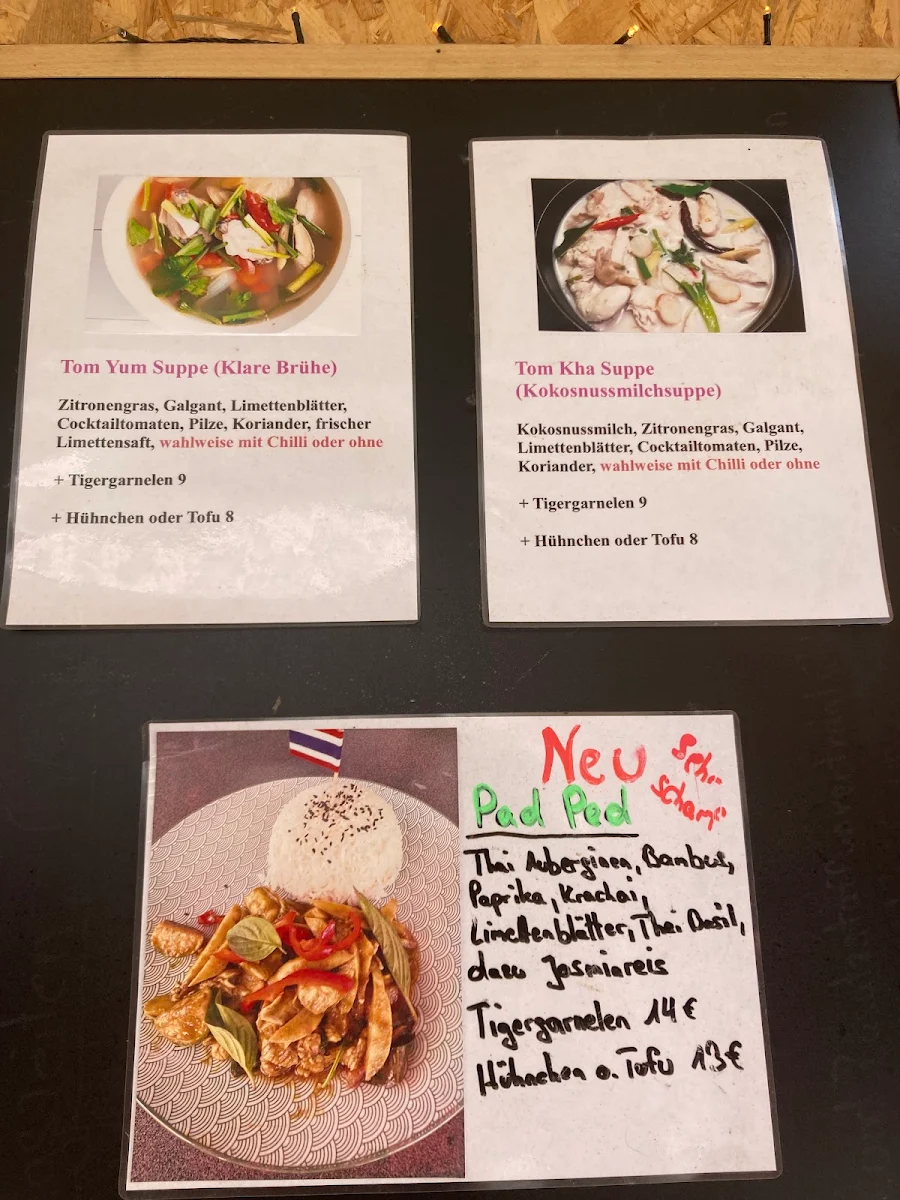 Tom Yum Suppe (Klare Brühe)
Zitronengras, Galgant, Limettenblätter,
Cocktailtomaten, Pilze, Koriander, frischer
Limettensaft, wahlweise mit Chilli oder ohne
+ Tigergarnelen 9
+ Hühnchen oder Tofu 8
Tom Kha Suppe
(Kokosnussmilchsuppe)
Kokosnussmilch, Zitronengras, Galgant,
Limettenblätter, Cocktailtomaten, Pilze,
Koriander, wahlweise mit Chilli oder ohne
+ Tigergarnelen 9
+ Hühnchen oder Tofu 8
Neu
Pad Ped
Thai Auberginen, Bambus,
Paprika, Krachai,
Limettenblätter, Thai Basil,
dazu Jasminreis
Tigergarnelen 14 €
Hühnchen o. Tofu 13 €